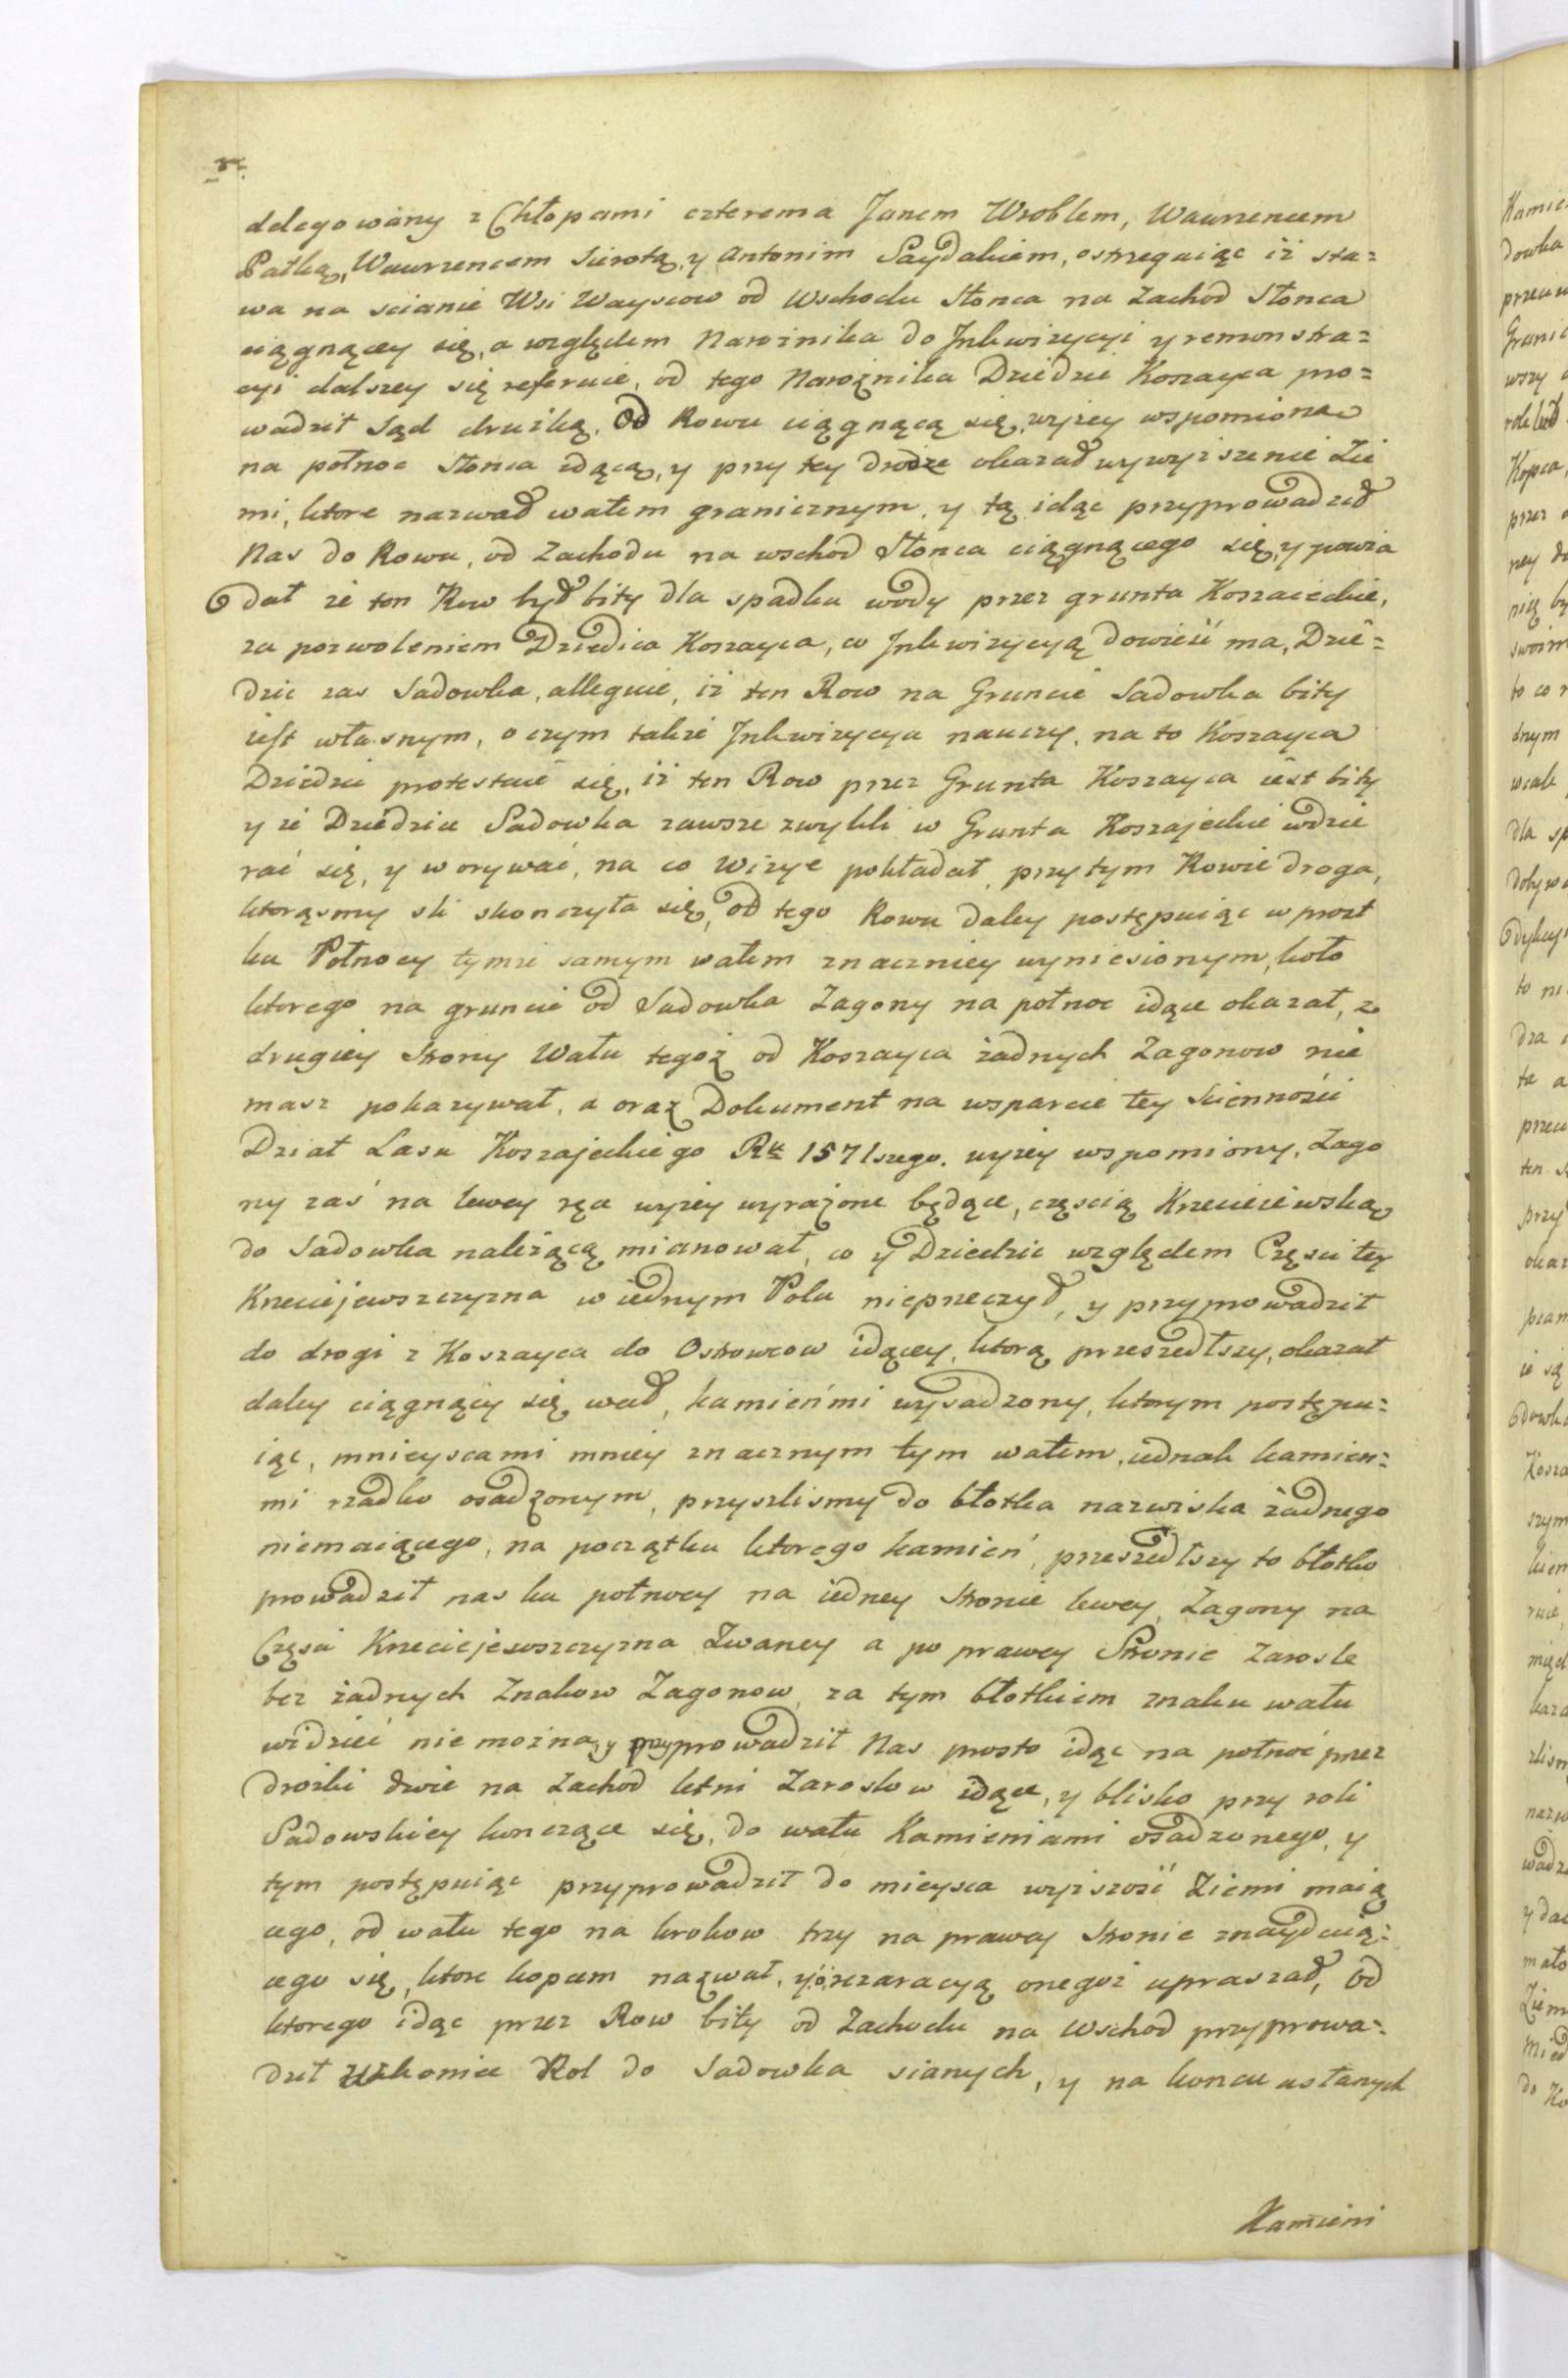 delegowany z Chłopami czterema Janem Wroblem, Wawrzencem
Pałką, Wawrzencem Sierotą, y Antonim Saydakiem, ostrzegaiąc iż sta=
wa na scianie Wsi Wayscow od Wschodu Słonca na Zachod Słonca
ciągnącey się, a względem Narożnika do Inkwizycyi y remonstra=
cyi dalszey się referuie, od tego Narożnika Dziedzic Koszayca pro=
wadził Sąd drużką, Od Rowu ciągnącą się, wyżey wspomioną
na połnoc Słonca idącą, y przy tey drodze okazał wywyższenie Zie
mi, ktore nazwał wałem granicznym, y tą idąc przyprowadził
Nas do Rowu, od Zachodu na wschod Słonca ciągnącego się, y powia
dał że ten Row był bity dla spadku wody przez grunta Koszaieckie,
za pozwoleniem Dziedica Koszayca, co Inkwizycyą dowieść ma, Dzie=
dzic zas Sadowka, alleguie, iż ten Row na Gruncie Sadowka bity
iest własnym, o czym także Inkwizycya nauczy, na to Koszayca
Dziedzic protestuie się, iż ten Row przez Grunta Koszayca iest bity
y że Dziedzice Sadowka zawsze zwykli w Grunta Koszajeckie wdzie
rać się, y worywać, na co Wizye pokładał, przy tym Rowie droga,
ktorąsmy sli skonczyła się, od tego Rowu daley postępuiąc w prost
ku Połnocy tymże samym wałem znaczniey wyniesionym, koło
ktorego na gruncie od Sadowka Zagony na połnoc idące okazał, z
drugiey Strony Wału tegoż od Koszayca żadnych Zagonow nie
masz pokazywał, a oraz Dokument na wsparcie tey Scienności
Dział Lasu Koszajeckiego Rku 1571szego. wyżey wspomiony, Zago
ny zaś na lewey ręce wyżey wyrażone będące, częscią Krzecieiewską
do Sadowka należącą mianował, co y Dziedzic względem Częsci tey
Krzeciejewszczyzna w iednym Polu nieprzeczył, y przyprowadził
do drogi z Koszayca do Ostrowcow idącey, ktorą przeszedłszy, okazał
daley ciągnący się wał, kamieńmi wysadzony, ktorym postępu=
iąc, mnieyscami mniey znacznym tym wałem, iednak kamien=
mi rzadko osadzonym, przyszlismy do błotka nazwiska żadnego
niemaiącego, na początku ktorego kamień, przeszedłszy to błotko
prowadził nas ku połnocy na iedney Stronie lewey, Zagony na
Częsci Krzeciejewszczyzna Zwaney a po prawey Stronie Zarosle
bez żadnych Znakow Zagonow, za tym błotkiem znaku wału
widzieć nie można, y przyprowadził Nas prosto idąc na połnoć przez
drożki dwie na Zachod letni Zaroslow idące, y blisko przy roli
Sadowskiey konczące się, do wału Kamieniami osadzonego, y
tym postępuiąc przyprowadził do mieysca wyższość Ziemi maią
cego, od wału tego na krokow trzy na prawey Stronie znayduią=
cego się, ktore kopcem nazwał, y o rezaracyą onegoż upraszał, Od
ktorego idąc przez Row bity od Zachodu na Wschod przyprowa=
dził Rol do Sadowka sianych, y na koncu usłanych
Kamieni